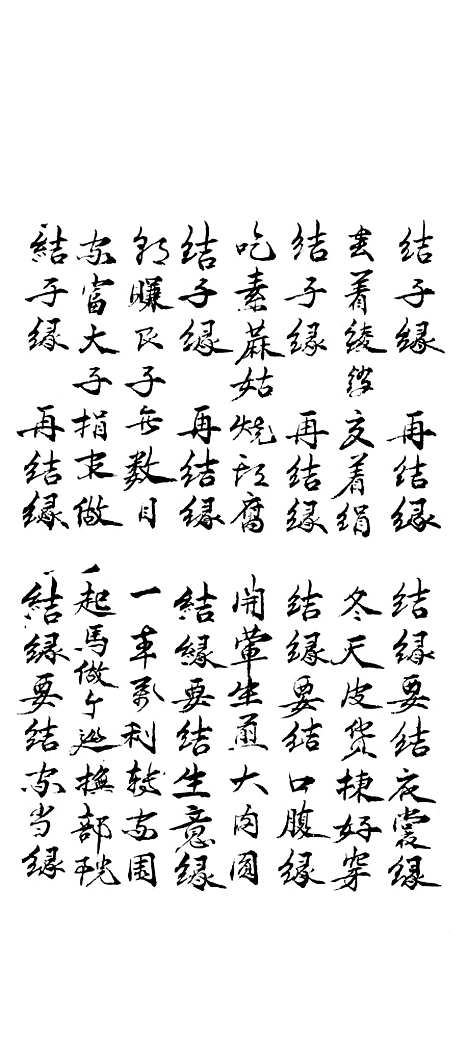 结子缘 再结缘 结缘要结衣裳缘
着绫 夏着绢 冬天皮货拣好穿
结子缘 再结缘 结缘要结口腹缘
吃素蔴姑烧豆腐 開葷生煎大肉圆
结子缘 再结缘 结缘要结生意缘
赚艮子无数目 一本万利转家园
家富大子捐官做 起馬做个巡撫部院
结子缘 再结缘 结缘要结家当缘